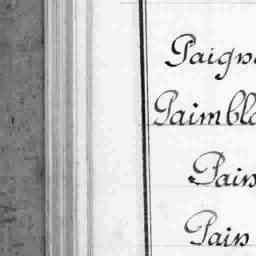 Paign
Paimbl
Pain
Pain